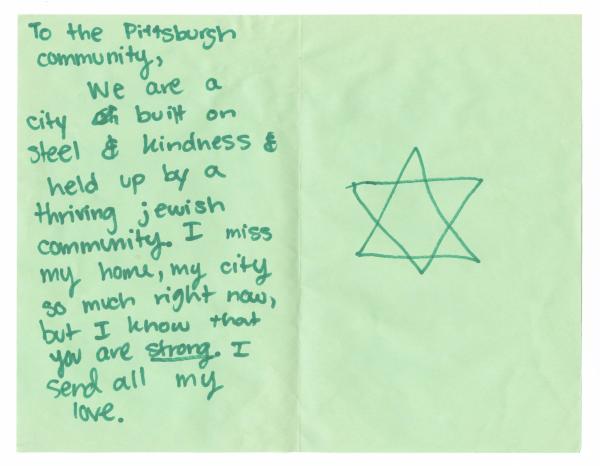 To the Pittsburgh
community,
We are a
city built on
steel & kindness &
held up by a
thriving jewish
community. I miss
my home, my city
so much right now,
but I know that
you are strong. I
send all my
love.